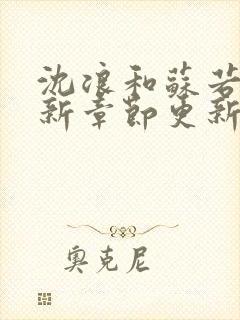 沈浪和蘇若
新章節更新
奧克尼